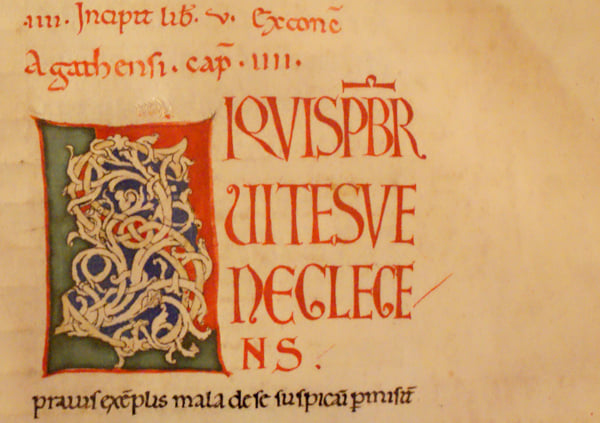 .iiii. Incipit lib̄. v. Exconc̄
Agathensi. cap̄. iiii.
SIQVISPB̄R
UITESVE
NEGLEGE
NS.
prauis exēplis mala dese suspicari ꝑmiserit